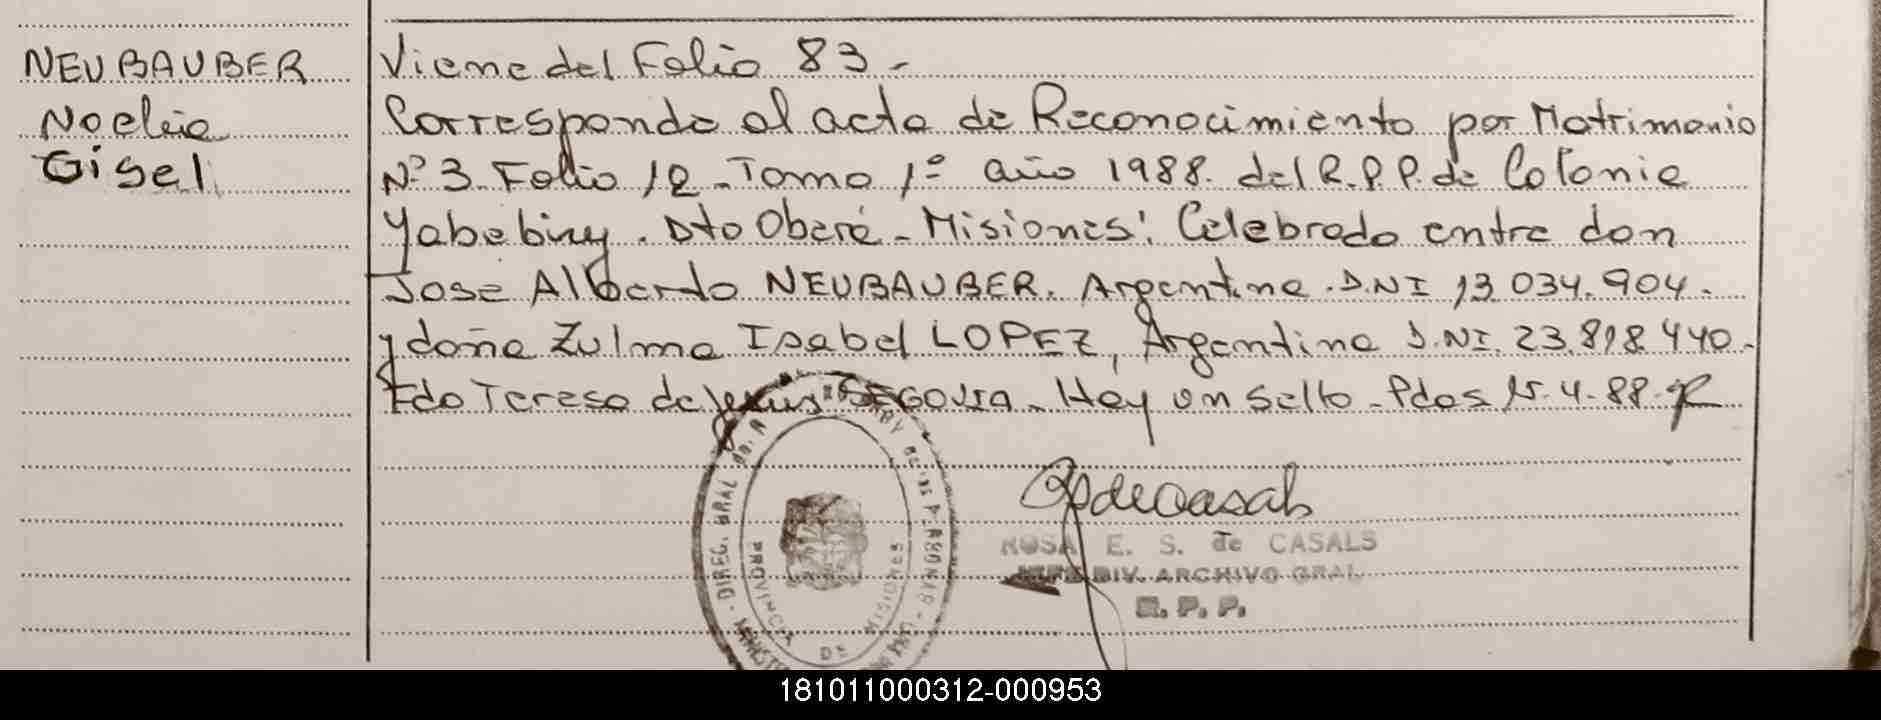 NEUBAUBER
Noelia
Gisel
Viene del Folio 83.-
Corresponde al acta de Reconocimiento por Matrimonio
Nº 3. Folio 12. Tomo 1º año 1988. del R.P.P. de Colonia
Yabebiry. Dto Oberá - Misiones. Celebrado entre don
José Alberto NEUBAUBER. Argentino. D.NI 13.034.904.
y doña Zulma Isabel LOPEZ, Argentina D.NI. 23.818.440.
Fdo Teresa de Jesus SEGOVIA. Hay un sello. Pdas 15.4.88.
ROSA E. S. de CASALS
JEFE DIV. ARCHIVO GRAL
R. P. P.
DIREC. GRAL
PROVINCIA DE MISIONES
181011000312-000953